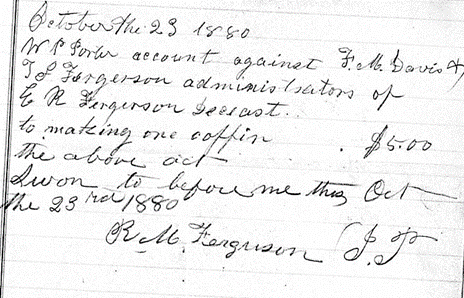 October the 23 1880
W P Porter account against F. M. Davis &
T S Fergerson administrators of
E R Fergerson Deceast.
to making one coffin . $5.00
the above act
Swon to before me this Oct
the 23rd 1880
R. M. Ferguson J. P